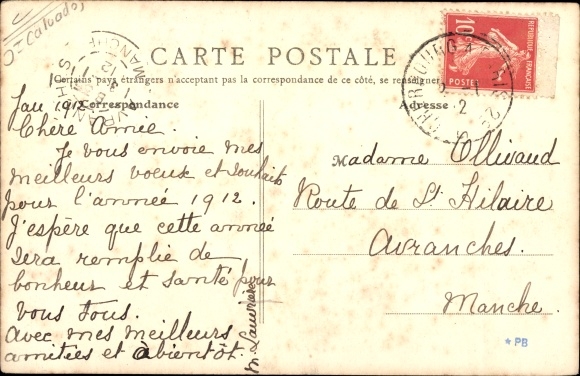 Calvados
CARTE POSTALE
Certains pays étrangers n'acceptant pas la correspondance de ce côté, se renseigner
Correspondance
Adresse
Jan 1912
Chère Amie.
Je vous envoie mes
meilleurs voeux et souhaits
pour l'année 1912.
J'espère que cette année
sera remplie de
bonheur et santé pour
vous tous.
Avec mes meilleurs
amitiées et à bientôt.
Madame Ollivaud
Route de St Hilaire
Avranches.
Manche.
10
POSTES
REPUBLIQUE FRANÇAISE
CHERBOURG
AVRANCHES
MANCHE
*PB